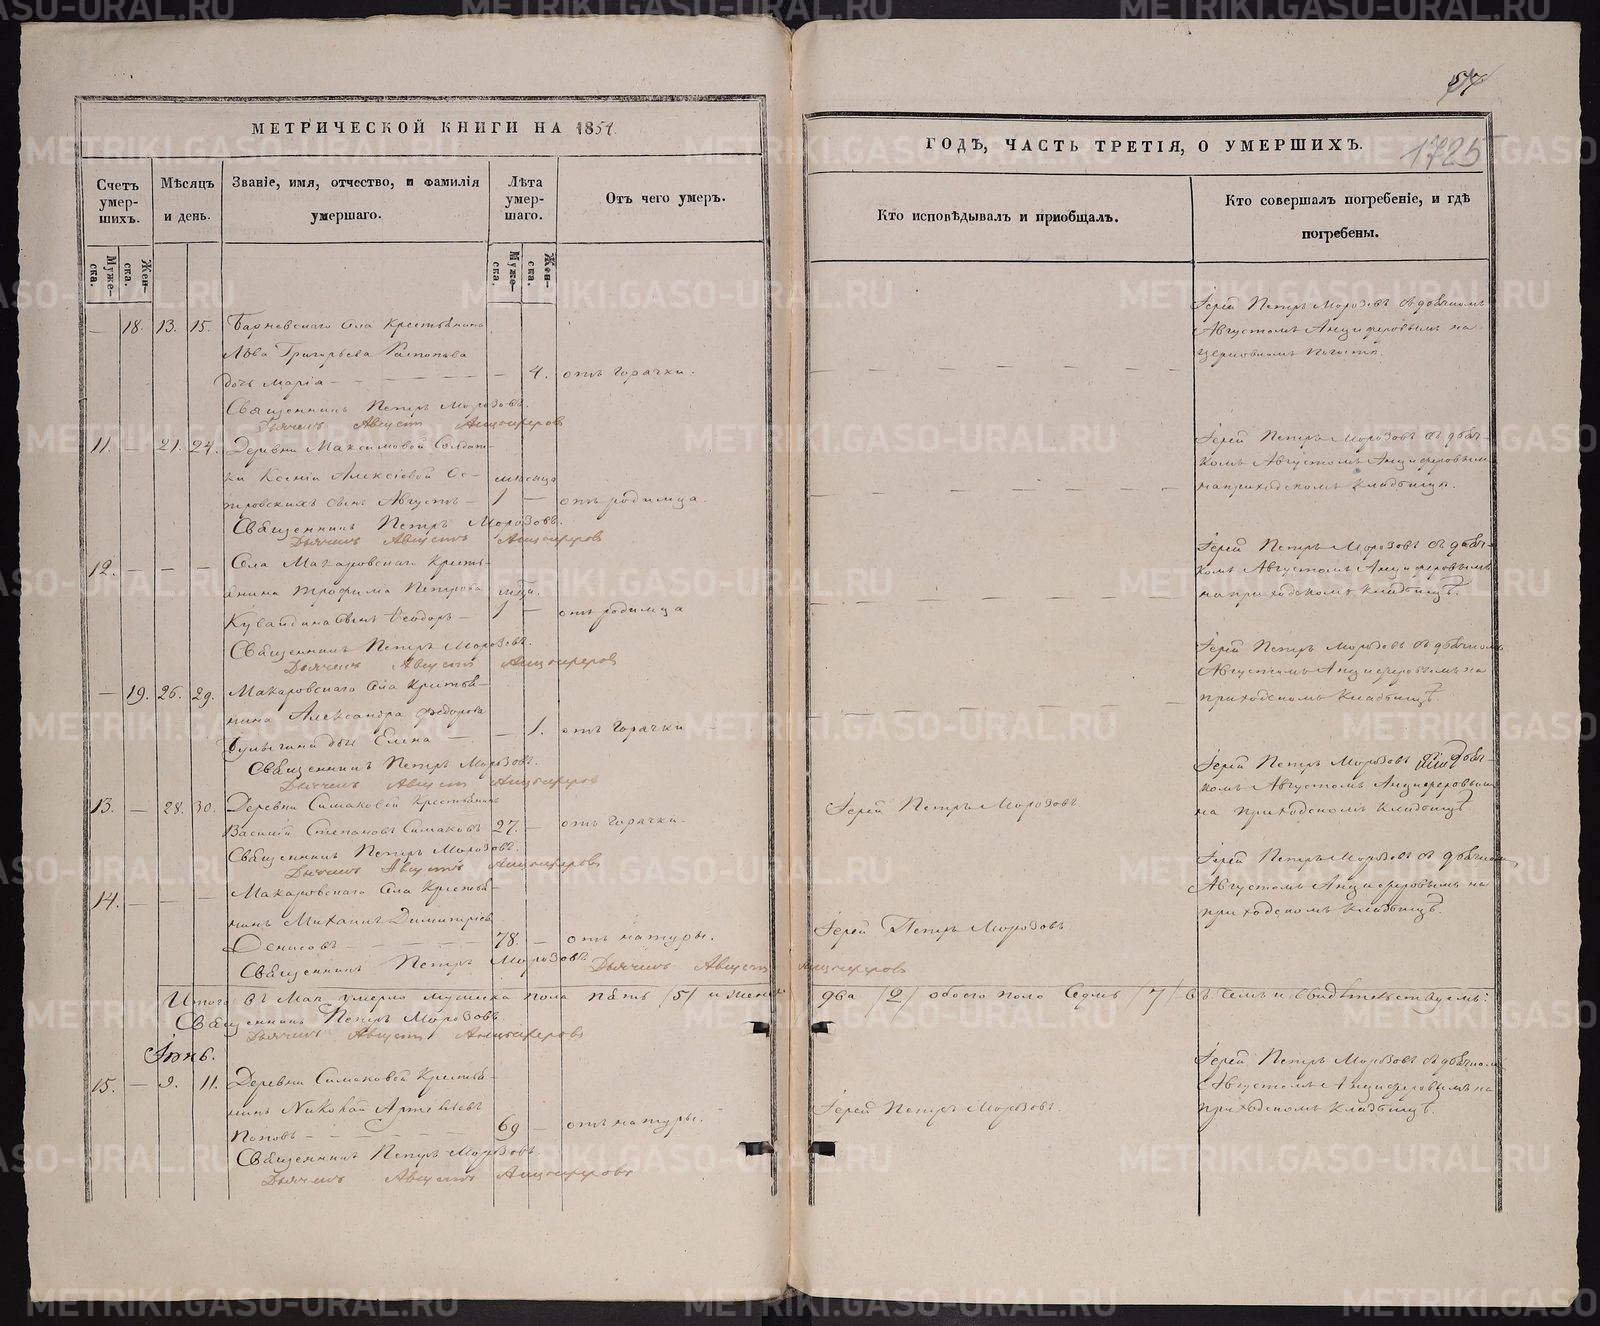 МЕТРИЧЕСКОЙ КНИГИ НА 1851.
Счетъ умер-шихъ.
Мѣсяцъ и день.
Званіе, имя, отчество, и фамилія умершаго.
Лѣта умер-шаго.
Отъ чего умеръ.
Муже-ска.
Жен-ска.
Муже-ска.
Жен-ска.
— 18. 13. 15. Барневскаго села крестьянина
Льва Григорьева
дочь Марія — — — — — 4. отъ горячки.
Священникъ Петръ Морозовъ.
Дьячекъ Августъ Анциферовъ
11. — 21. 24. Деревни Максимовой солдат-
ки Ксеніи Алексіевой Ос- мѣсяца
тровскихъ сынъ Августъ — 1 — отъ родимца.
Священникъ Петръ Морозовъ.
Дьячекъ Августъ Анциферовъ
12. — — — Села Макаровскаго кресть-
янина Трофима Петрова
Кувалдина сынъ Ѳеодоръ — 1 — отъ родимца
Священникъ Петръ Морозовъ.
Дьячекъ Августъ Анциферовъ
— 19. 26. 29. Макаровскаго села крестья-
нина Александра Федорова
дочь Елена — — 1. отъ горячки
Священникъ Петръ Морозовъ.
Дьячекъ Августъ Анциферовъ
13. — 28. 30. Деревни Симаковой крестьянинъ
Василій Степановъ Симаковъ 27. — отъ горячки.
Священникъ Петръ Морозовъ.
Дьячекъ Августъ Анциферовъ
14. — — — Макаровскаго села крестья-
нинъ Михаилъ Димитріевъ
Денисовъ — — — — — 78. — отъ натуры.
Священникъ Петръ Морозовъ Дьячекъ Августъ Анциферовъ
Итого въ Маѣ умерло мужска пола пять /5/ и женска два /2/ обоего пола седмь /7/ въ чемъ и свидѣтельствуемъ:
Священникъ Петръ Морозовъ.
Дьячекъ Августъ Анциферовъ
Іюнь.
15. — 9. 11. Деревни Симаковой крестья-
нинъ Николай Артемьевъ
Поповъ — — — — — 69 — отъ натуры.
Священникъ Петръ Морозовъ.
Дьячекъ Августъ Анциферовъ
57
ГОДЪ, ЧАСТЬ ТРЕТІЯ, О УМЕРШИХЪ.
1725
Кто исповѣдывалъ и пріобщалъ.
Кто совершалъ погребеніе, и гдѣ погребены.
Іерей Петръ Морозовъ съ дьячкомъ
Августомъ Анциферовымъ на
церковномъ погостѣ.
Іерей Петръ Морозовъ съ дьяч-
комъ Августомъ Анциферовымъ
на приходскомъ кладбищѣ.
Іерей Петръ Морозовъ съ дьяч-
комъ Августомъ Анциферовымъ
на приходскомъ кладбищѣ.
Іерей Петръ Морозовъ съ дьячкомъ
Августомъ Анциферовымъ на
приходскомъ кладбищѣ.
Іерей Петръ Морозовъ
Іерей Петръ Морозовъ дьяч-
комъ Августомъ Анциферовымъ
на приходскомъ кладбищѣ
Іерей Петръ Морозовъ
Іерей Петръ Морозовъ съ дьячкомъ
Августомъ Анциферовымъ на
приходскомъ кладбищѣ.
Іерей Петръ Морозовъ.
Іерей Петръ Морозовъ съ дьячкомъ
Августомъ Анциферовымъ на
приходскомъ кладбищѣ.
METRIKI.GASO-URAL.RU